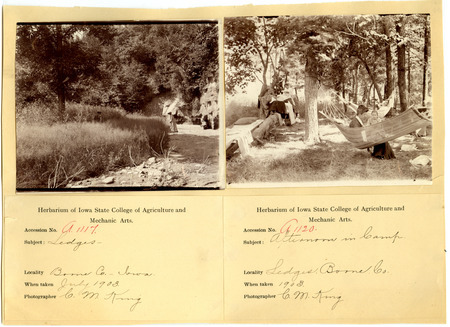 Herbarium of Iowa State College of Agriculture and
Mechanic Arts.
Accession No. A 1117.
Subject; Ledges-
Locality Boone Co- Iowa
When taken July 1903.
Photographer C. M. King
Herbarium of Iowa State College of Agriculture and
Mechanic Arts.
Accession No. A 1120.
Subject; Afternoon in Camp
Locality Ledges (Boone Co.
When taken 1903.
Photographer C. M. King